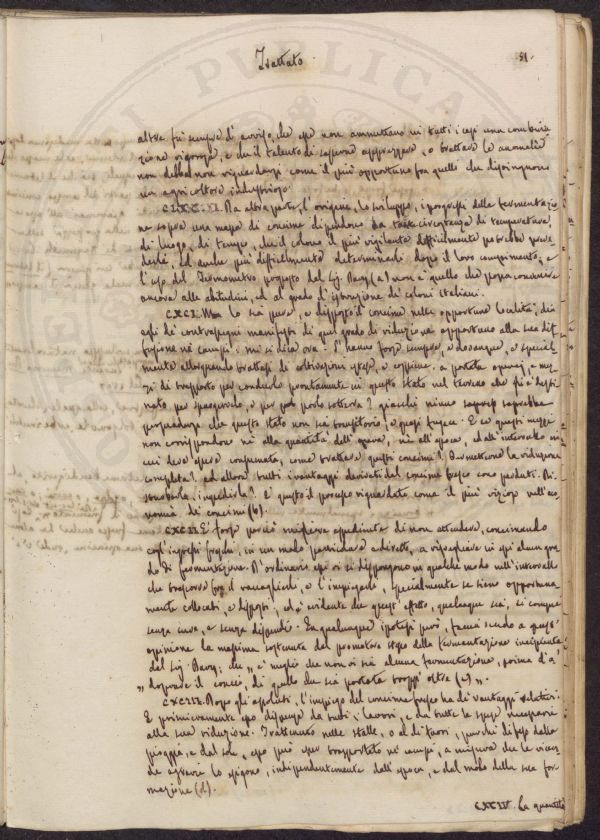 Trattato.
51.
altre fui sempre d'avviso, che esse non ammettano in tutti i casi una combina
zione rigorosa, e che il talento di saperne apprezzare, o trattare le anomalie
non debbasi non riguardarsi come il più opportuno fra quelli che distinguono
un agricoltore industrioso.
CLXC. Ma altra parte, l'origine, lo sviluppo, i progressi della fermentazio
ne sopra una massa di concime dipendono da tante circostanze di temperatura,
di luogo, di tempo, che il colono il più vigilante difficilmente potrebbe preve
derli, ed anche più difficilmente determinarli dopo il loro compimento, e
l'uso del Termometro proposto dal Sig. Davy (a) non è quello che possa convenire
ancora alle abitudini, ed al grado d'istruzione de' coloni italiani.
CXCI. Ma lo sia pure, e disposto il concime nelle opportune località, dia
egli de' contrassegni manifesti di quel grado di riduzione opportuno alla sua dif
fusione ne' campi: mi si dica ora: s'hanno forse sempre, e dovunque, e special
mente allorquando trattasi di coltivazioni estese, e a portata operaj, e mez
zi di trasporto per condurlo prontamente in questo stato nel terreno che si è desti
nato per spargervelo, e per poi porlo sotterra? giacchè niuno saprebbe
persuadersi che questo stato non sia transitorio, e quasi fugace. E se questi mezzi
non corrispondono nè alla quantità dell'opera, nè all'epoca, ed all'intervallo in
cui deve essere consumata, come trattare questi concimi? Ammettere la riduzione
completa? ed allora tutti i vantaggi derivati dal concime fresco sono perduti.
impedirla? E questo il processo riguardato come il più vizioso nell'eco
nomia de' concimi (b).
CXCII. E forse perciò miglior espediente di non attendere, concimando
cogli ingrassi freschi, in un modo particolare e diretto, a risvegliare in essi alcun gra
do di fermentazione. D'ordinario essi vi si dispongono in qualche modo nell'intervallo
che trascorre fra il raccoglierli, e l'impiegarli, specialmente se sieno opportuna
mente collocati, e disposti, ed è evidente che quest'effetto, qualunque sia, si compie
senza cura, e senza dispendj. In qualunque ipotesi poi, faccia scudo a quest'
opinione la massima sostenuta dal promotore stesso della fermentazione incipiente
dal Sig. Davy; che „ è meglio che non vi sia alcuna fermentazione, prima d'a
„ doperare il concio, di quello che sia portata troppo oltre (c) „.
CXCIII. Dopo gli esposti, l'impiego del concime fresco ha de' vantaggi relativi.
E primieramente esso dispensa da tutti i lavori, e da tutte le spese necessarie
alla sua riduzione. Trattenuto nelle stalle, o al di fuori, purchè difeso dalla
pioggia, e dal sole, esso può esser trasportato ne' campi, a misura che le vicen
de agrarie lo esigono, indipendentemente dall'epoca, e dal modo della sua for
mazione (d).
CXCIV. La quantità